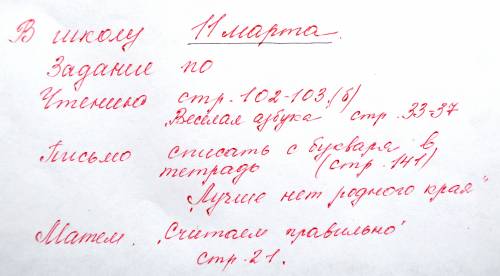 В школу 11 марта.
Задание по
Чтению стр. 102-103 (б)
„Веселая азбука стр. 33-37
Письмо списать с букваря в
тетрадь (стр. 141)
„Лучше нет родного края"
Матем. „Считаем правильно"
стр. 21.